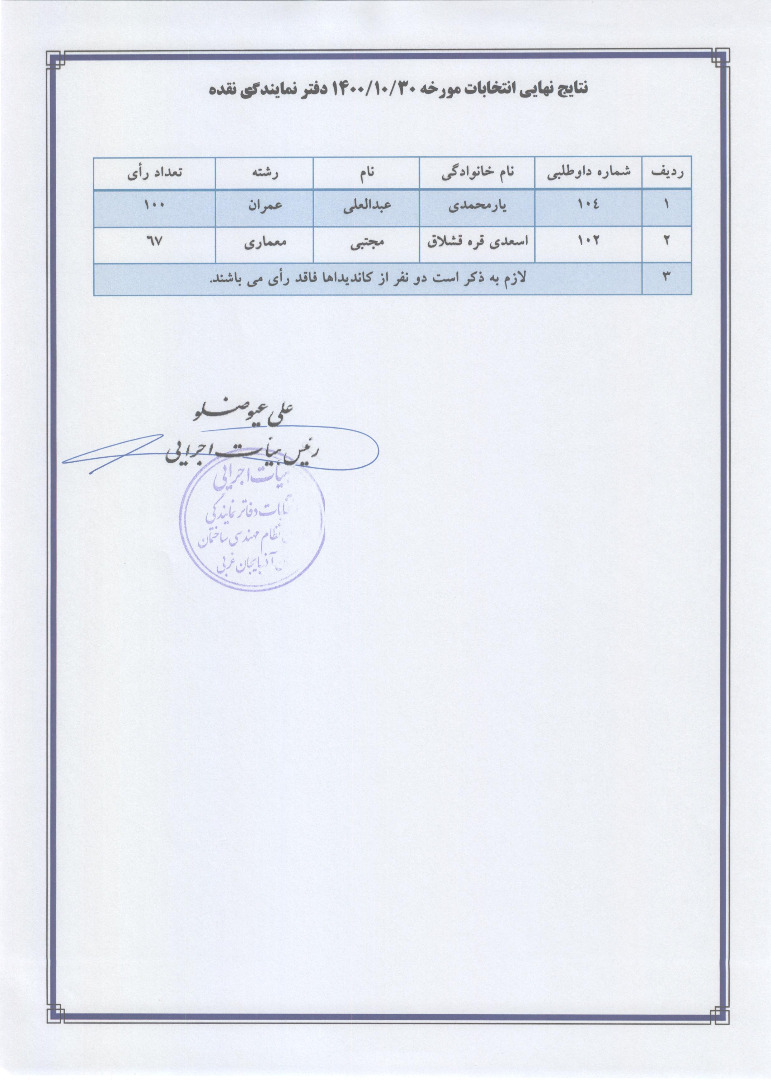 نتایج نهایی انتخابات مورخه ۱۴۰۰/۱۰/۳۰ دفتر نمایندگی نقده
ردیف شماره داوطلبی نام خانوادگی نام رشته تعداد رأی
۱ ۱۰٤ یارمحمدی عبدالعلی عمران ۱۰۰
۲ ۱۰۲ اسعدی قره قشلاق مجتبی معماری ٦۷
۳ لازم به ذکر است دو نفر از کاندیداها فاقد رأی می باشند.
علی عیوضلو
رئیس هیأت اجرایی
هیأت اجرایی
دفاتر نمایندگی
نظام مهندسی ساختمان
آذبایجان غربی